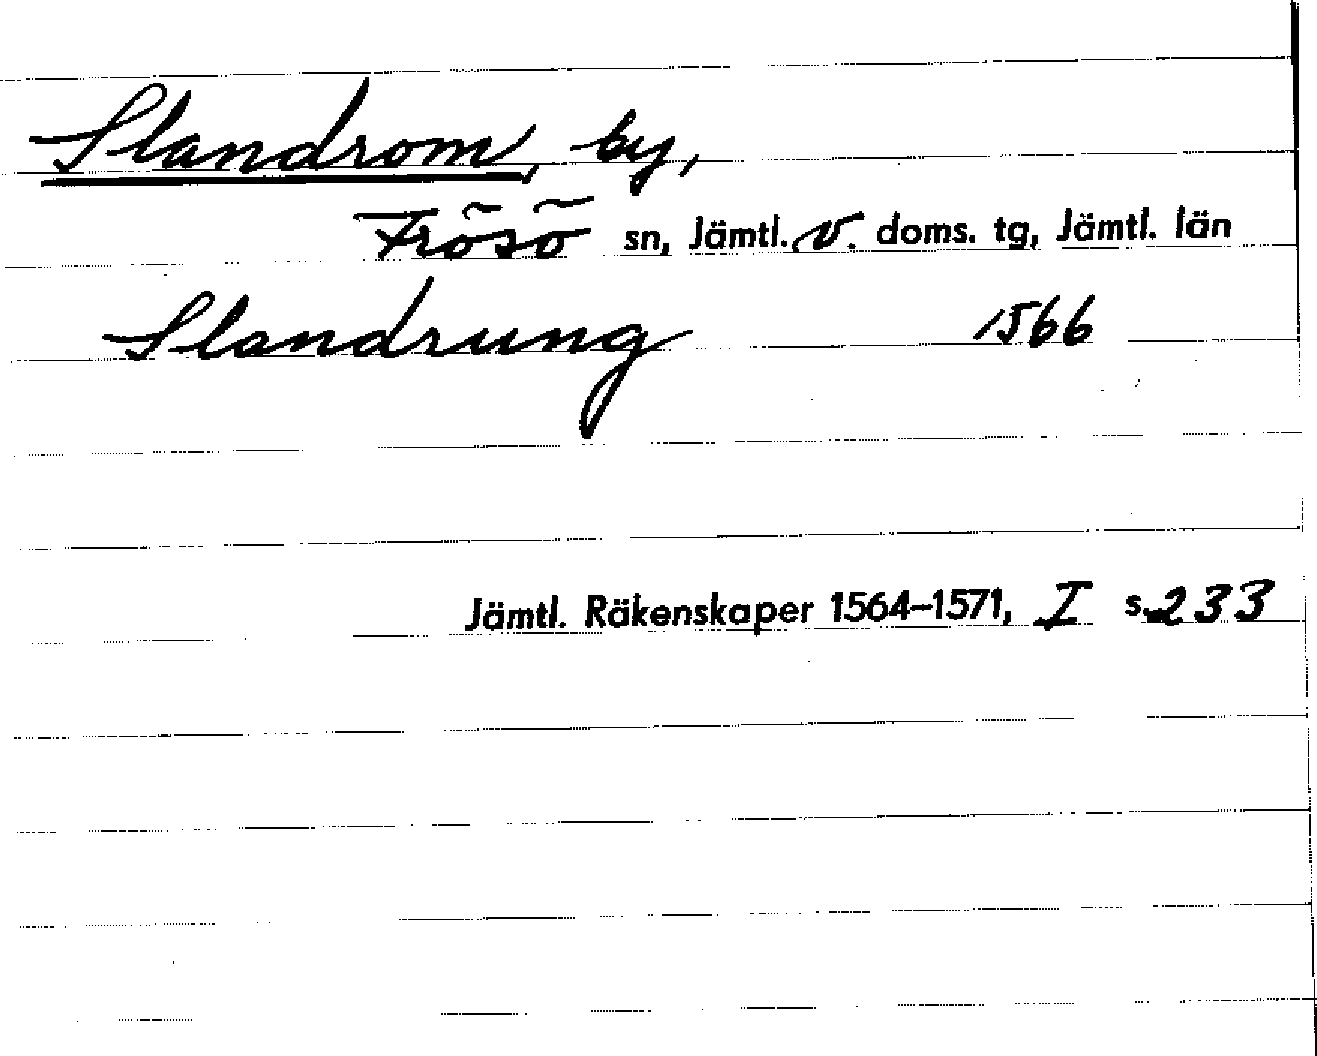 Slandrom, by,
Frösö sn, Jämtl. v. doms. tg, Jämtl. län
Slandrung 1566
Jämtl. Räkenskaper 1564–1571, I s. 233